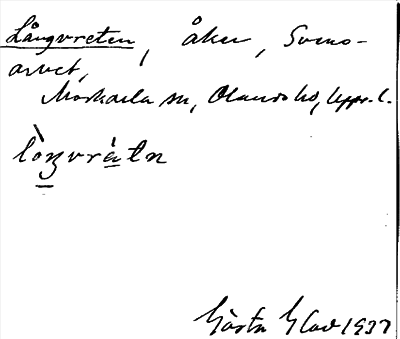 Långvreten, åker, Svens-
arvet,
Morkarla sn, Olands hd, Upps. l.
lòŋvràtn
Gösta Glad 1937